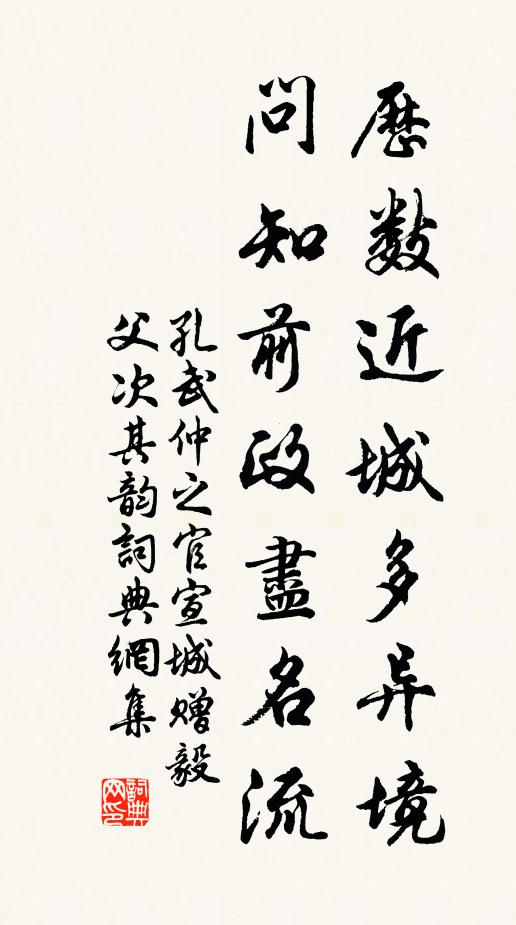 歷數近城多异境
問知前政盡名流
孔武仲之官宣城赠毅
父次其韵詞典網集
詞典網印